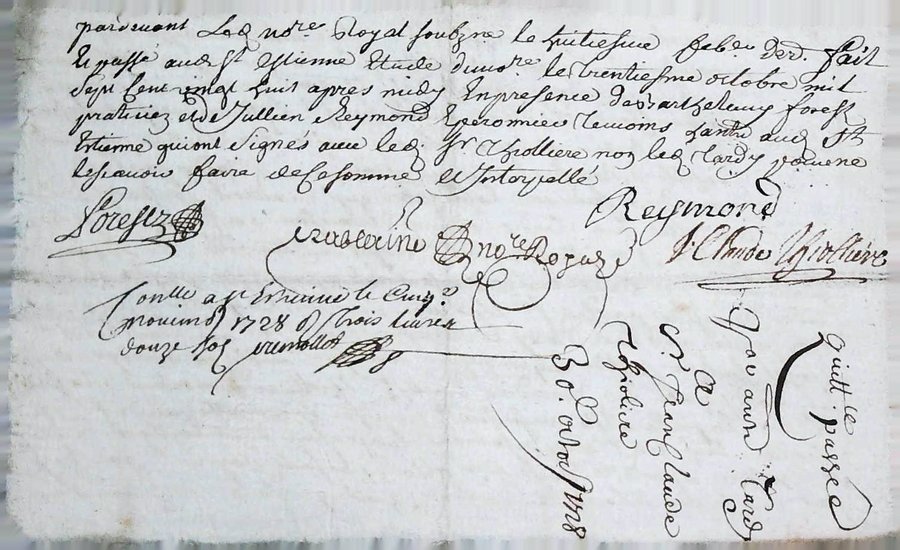 pardevant Led nore Royal soubzne le huitiesme feb.er der. fait
Et passé aud St Estienne Etude dunore le trentiesme octobre mil
Sept Cent vingt huit apres midy En presence de Barthelemy forest
praticiez et de Jullien Reymond Eperonnier Temoins hantz aud St
Etienne qui ont Signés avec led Sr Thiolliere non led Tardy pour ne
le scavoir faire de Ce sommé et Interpellé
Reymond
Forestz
nore Royal
J Claude Thiolliére
Conlle a St Etienne le Cinq.e
novemb 1728 Trois livres
douze sols
quitt.ce passee
par aux Tardy
A
Sr Jean Claude
Thioliere
30.e octob 1728